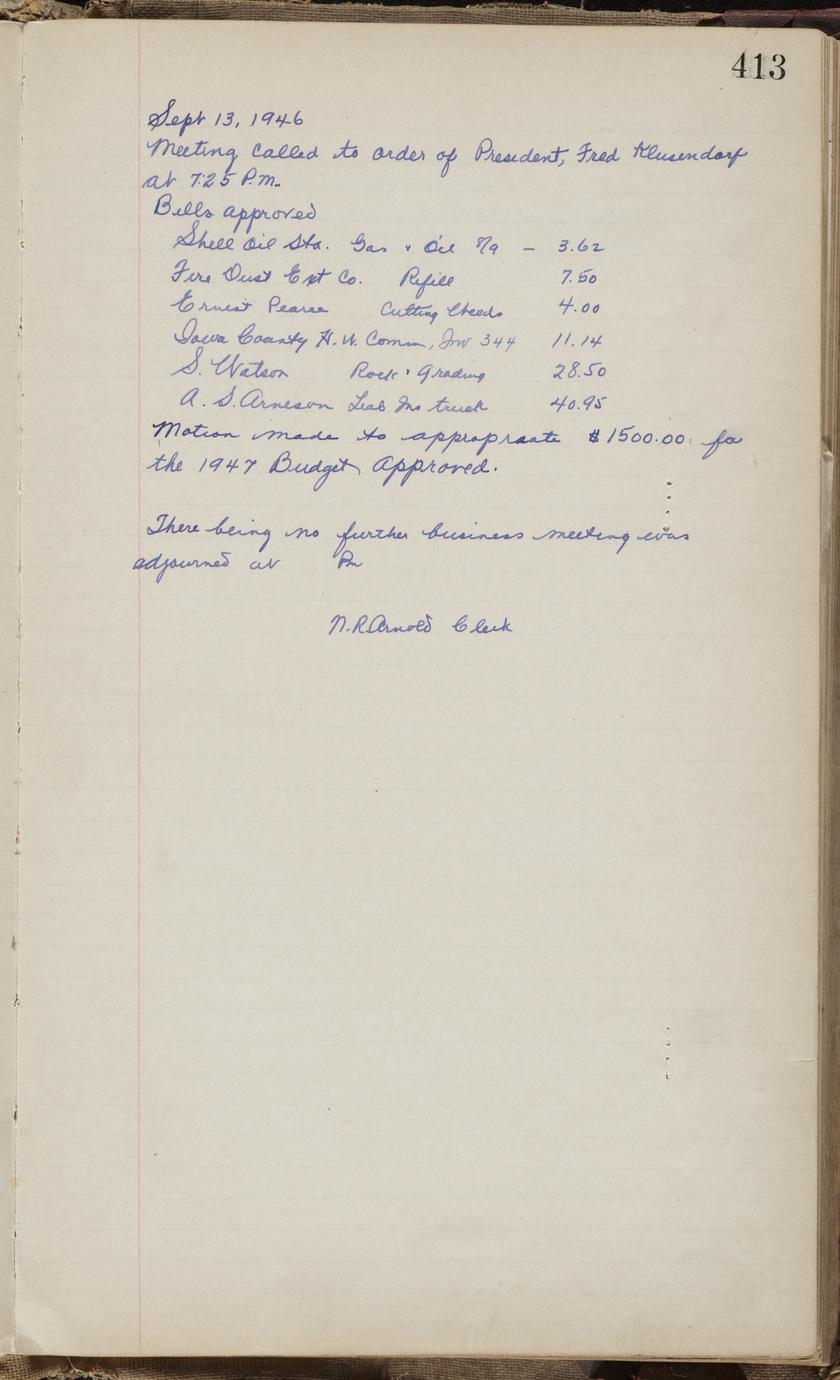 413
Sept 13, 1946
Meeting called to order of President, Fred Klusendorf
at 7:25 P.M.
Bills approved
Shell Oil Sta. Gas & Oil 8/9 — 3.62
Fire Dust Ext Co. Refill 7.50
Ernest Pearce Cutting Weeds 4.00
Iowa County H.W. Comm, Inv 344 11.14
S. Watson Rock & Grading 28.50
A. S. Arneson Liab Ins truck 40.95
Motion made to appropraate $1500.00 for
the 1947 Budget, Approved.
There being no further business meeting was
adjourned at Pm
N.R. Arnold Clerk